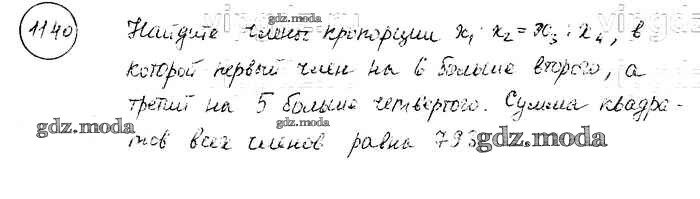 1140 Найдите члены пропорции x₁ : x₂ = x₃ : x₄, в
которой первый член на 6 больше второго, а
третий на 5 больше четвертого. Сумма квадра-
тов всех членов равна 793
gdz.moda
gdz.moda
gdz.moda
gdz.moda
gdz.moda